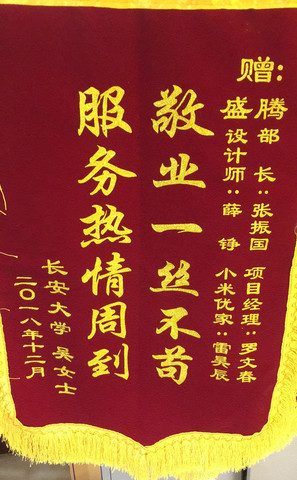 赠：
腾部长：张振国 项目经理：罗文春
盛设计师：薛铮 小米优家：雷昊辰
敬业一丝不苟
服务热情周到
长安大学 吴女士
二〇一八年十二月